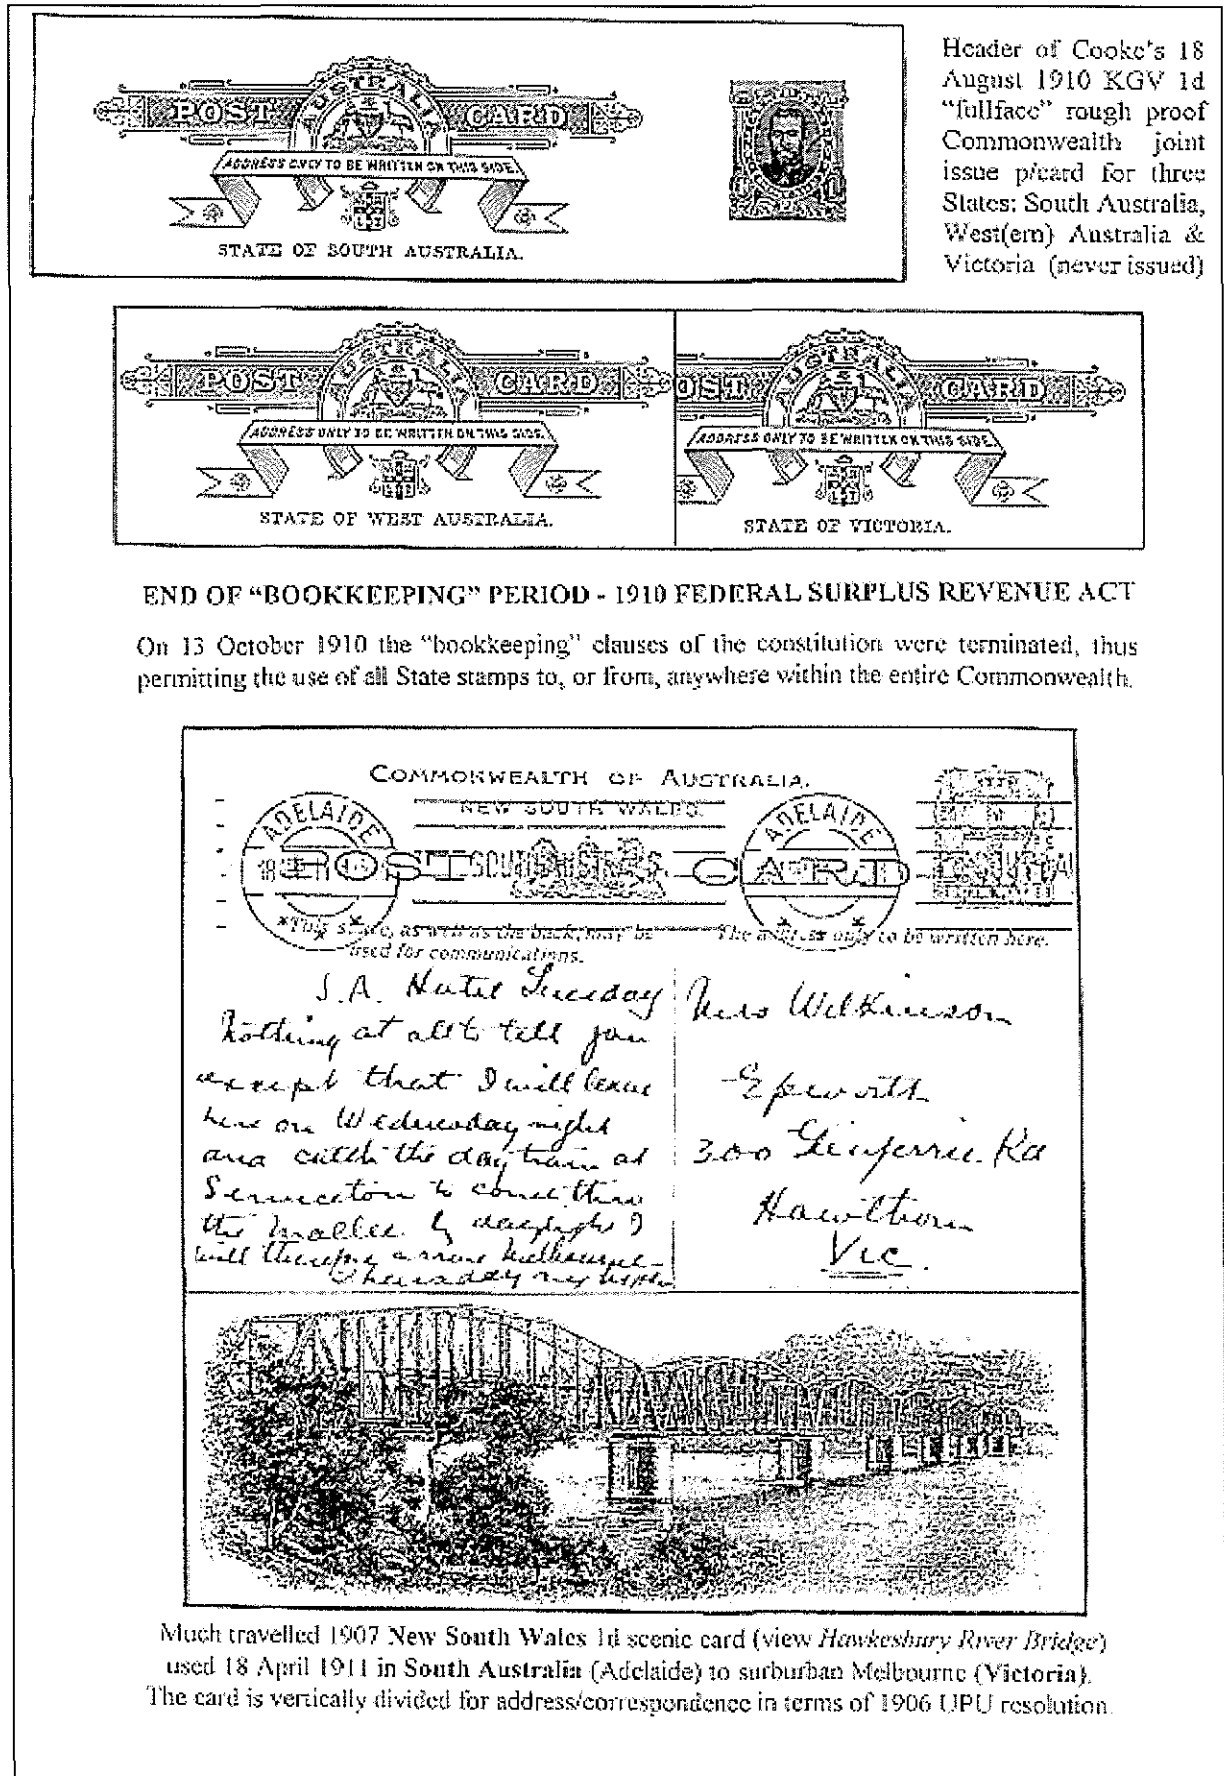 POST AUSTRALIA CARD
ADDRESS ONLY TO BE WRITTEN ON THIS SIDE.
STATE OF SOUTH AUSTRALIA.
Header of Cooke's 18
August 1910 KGV 1d
"fullface" rough proof
Commonwealth joint
issue p/card for three
States: South Australia,
West(ern) Australia &
Victoria (never issued)
POST AUSTRALIA CARD
ADDRESS ONLY TO BE WRITTEN ON THIS SIDE.
STATE OF WEST AUSTRALIA.
OST AUSTRALIA CARD
ADDRESS ONLY TO BE WRITTEN ON THIS SIDE.
STATE OF VICTORIA.
END OF "BOOKKEEPING" PERIOD - 1910 FEDERAL SURPLUS REVENUE ACT
On 13 October 1910 the "bookkeeping" clauses of the constitution were terminated, thus
permitting the use of all State stamps to, or from, anywhere within the entire Commonwealth.
COMMONWEALTH OF AUSTRALIA.
NEW SOUTH WALES.
ADELAIDE
ADELAIDE
POST CARD
This space, as well as the back, may be
used for communications.
The address only to be written here.
S.A. Hotel Tuesday
Nothing at all to tell you
except that I will leave
here on Wednesday night
and catch the day train at
to come thro
the Mallee by daylight I
will therefore arrive Melbourne
Thursday
Mrs Wilkinson
Epworth
300 Glenferrie Rd
Hawthorn
Vic.
Much travelled 1907 New South Wales 1d scenic card (view Hawkesbury River Bridge)
used 18 April 1911 in South Australia (Adelaide) to surburban Melbourne (Victoria).
The card is vertically divided for address/correspondence in terms of 1906 UPU resolution.